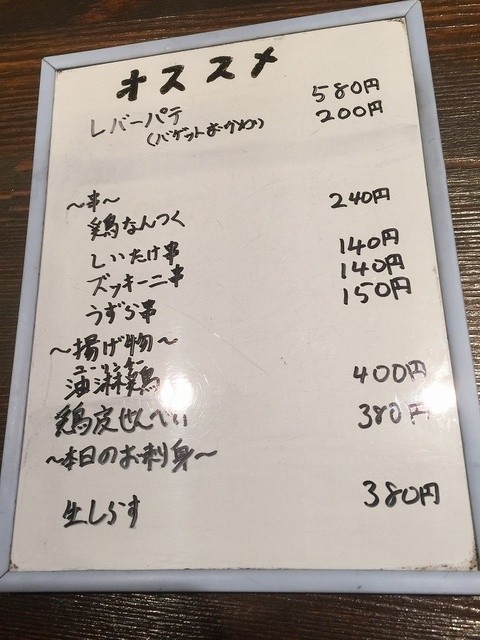 オススメ
レバーパテ 580円
(バゲットおかわり) 200円
～串～
鶏なんつく 240円
しいたけ串 140円
ズッキーニ串 140円
うずら串 150円
～揚げ物～
ユーリンチー
油淋鶏 400円
鶏皮せんべい 380円
～本日のお刺身～
生しらす 380円